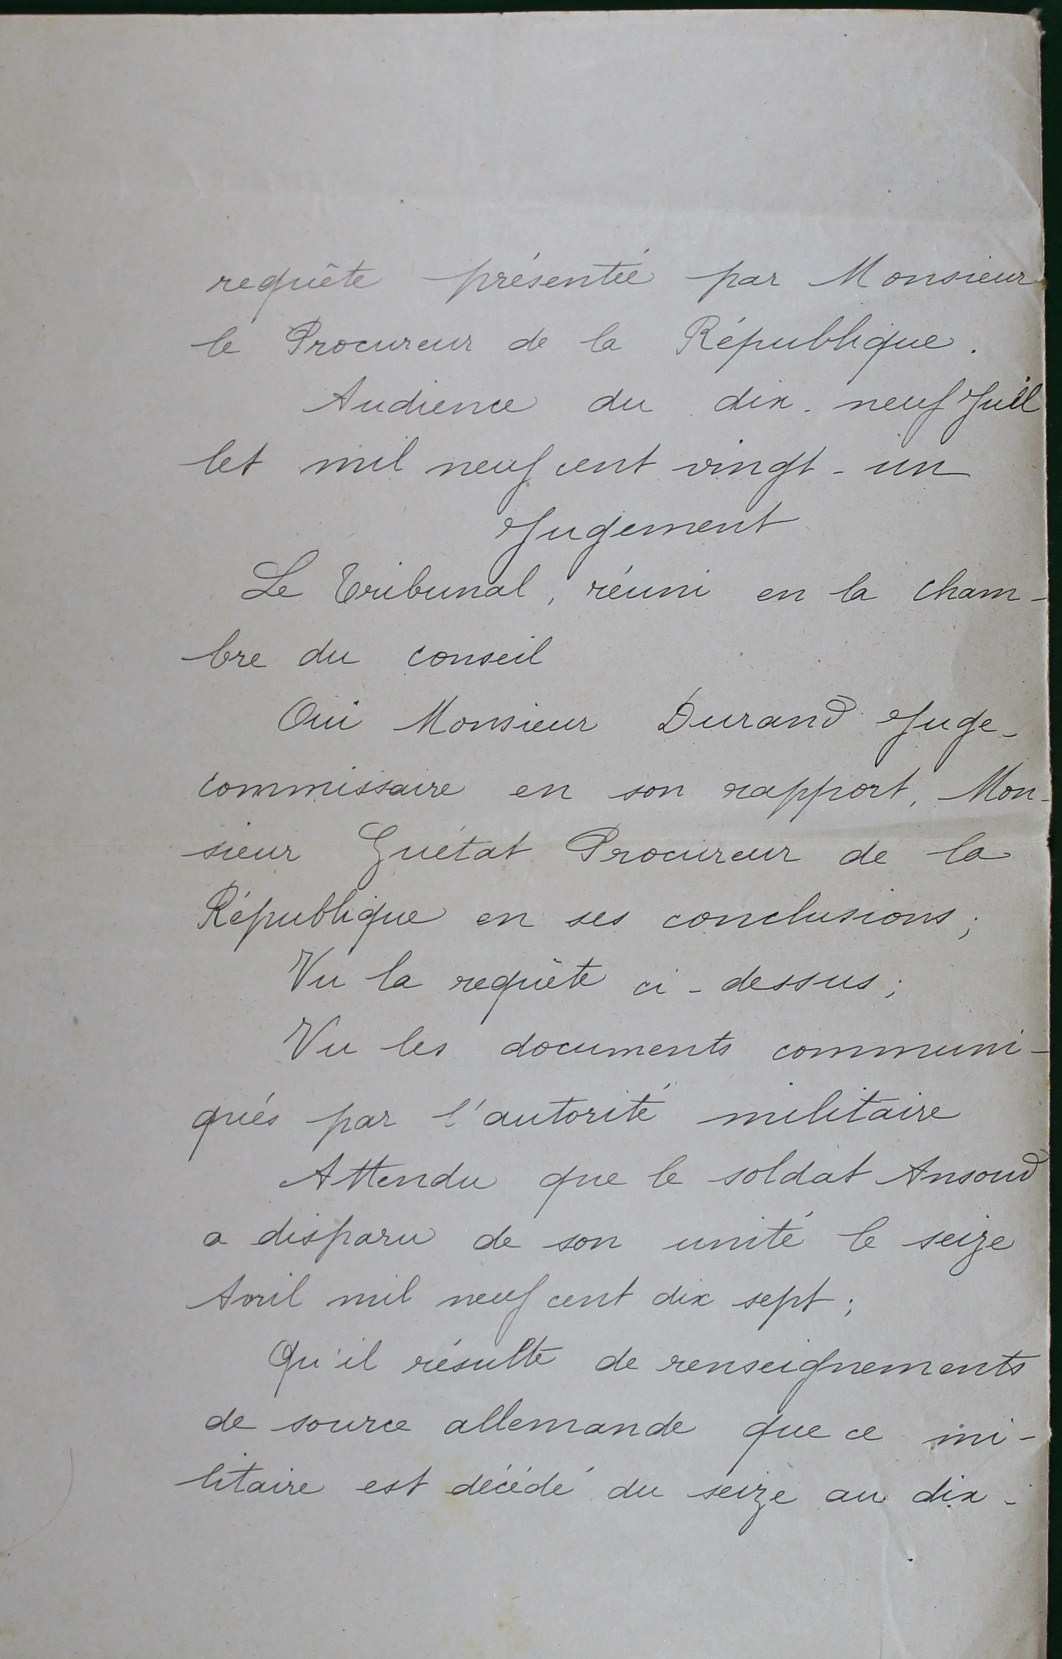 requête présentée par Monsieur
le Procureur de la République.
Audience du dix-neuf Juil
let mil neuf cent vingt-un
Jugement
Le Tribunal, réuni en la cham-
bre du conseil
Oui Monsieur Durand Juge-
commissaire en son rapport, Mon-
sieur Guétat Procureur de la
République en ses conclusions;
Vu la requête ci-dessus;
Vu les documents communi-
qués par l'autorité militaire
Attendu que le soldat Ansoud
a disparu de son unité le seize
Avril mil neuf cent dix sept;
Qu'il résulte de renseignements
de source allemande que ce mi-
litaire est décédé du seize au dix-